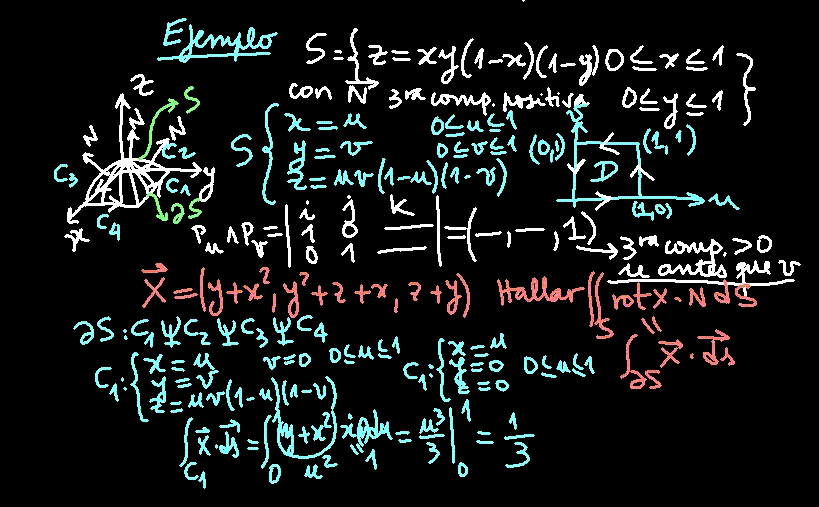 Ejemplo
S = { z = xy(1-x)(1-y) 0 ≤ x ≤ 1
con N 3ra comp. positiva 0 ≤ y ≤ 1 }
z S
N N N
C3 C2 C1 y
x C4 ∂S
S { x = u 0≤u≤1
y = v 0≤v≤1
z = uv(1-u)(1-v)
(0,1) (1,1)
D
(1,0) u
Pu ∧ Pv = | i j k |
1 0
0 1
= (—, —, 1)
→ 3ra comp. > 0
u antes que v
X = (y+x², y²+z+x, z+y) Hallar ∬S rot X · N dS
∥
∫∂S X · ds
∂S : C1 Ψ C2 Ψ C3 Ψ C4
C1: { x = u v=0 0≤u≤1
y = v
z = uv(1-u)(1-v)
C1: { x = u
y = 0 0≤u≤1
z = 0
∫C1 X · ds = ∫0 1 (y+x²) du = u³/3 |0 1 = 1/3
u² 1